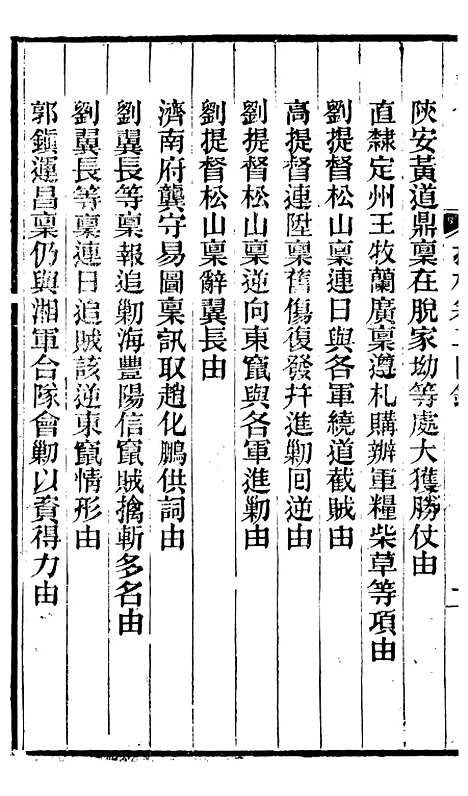 陝安黃道鼎稟在脫家坳等處大獲勝仗由
直隸定州王牧蘭廣稟遵札購辦軍糧柴草等項由
劉提督松山稟連日與各軍繞道截賊由
高提督連陞稟舊傷復發幷進勦回逆由
劉提督松山稟逆向東竄與各軍進勦由
劉提督松山稟辭翼長由
濟南府龔守易圖稟訊取趙化鵬供詞由
劉翼長等稟報追勦海豐陽信竄賊擒斬多名由
劉翼長等稟連日追賊該逆東竄情形由
郭鎭運昌稟仍與湘軍合隊會勦以資得力由